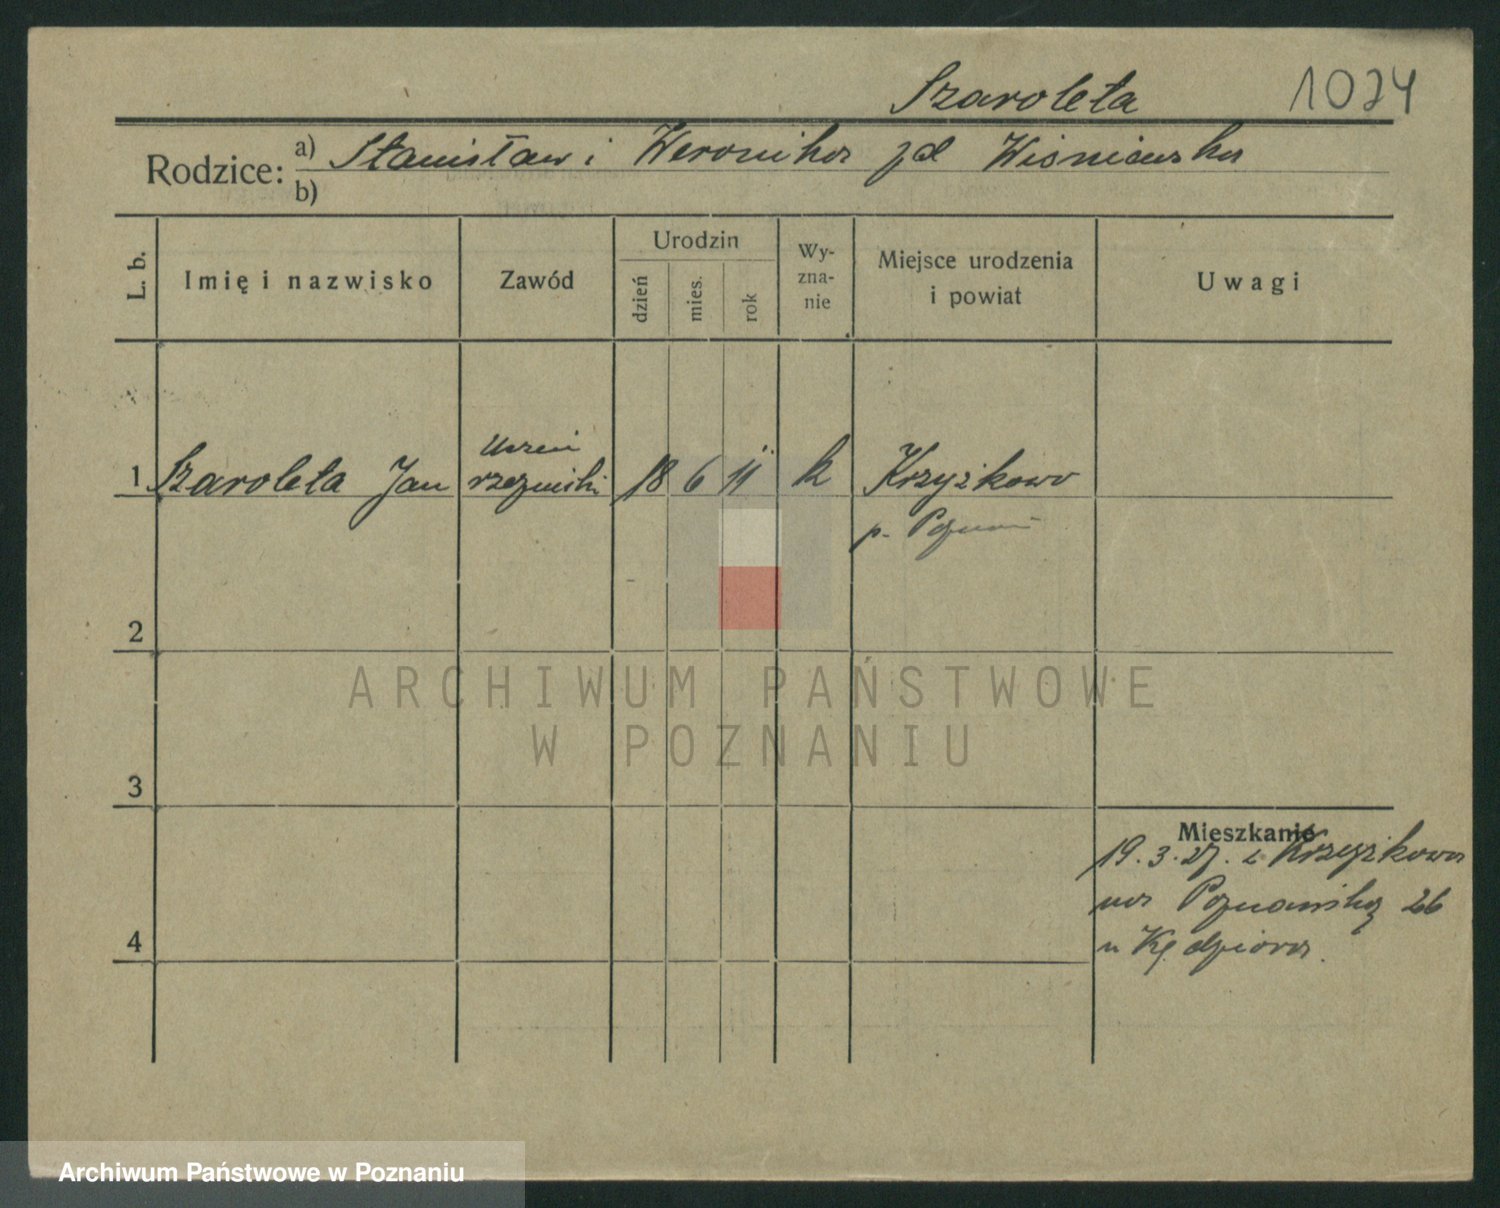 Szaroleta
1024
Rodzice: a) Stanisław i Weronika zd Wiśniewska
b)
L. b.
Imię i nazwisko
Zawód
Urodzin
dzień
mies.
rok
Wy-
zna-
nie
Miejsce urodzenia
i powiat
Uwagi
1 Szaroleta Jan
uczeń
rzeźnicki
18 6 11 k
Krzyżkowo
p. Poznań
2
3
4
Mieszkanie
19.3.27. z Krzyżkowa
na Poznańską 26
u Kędziora.
ARCHIWUM PAŃSTWOWE
W POZNANIU
Archiwum Państwowe w Poznaniu